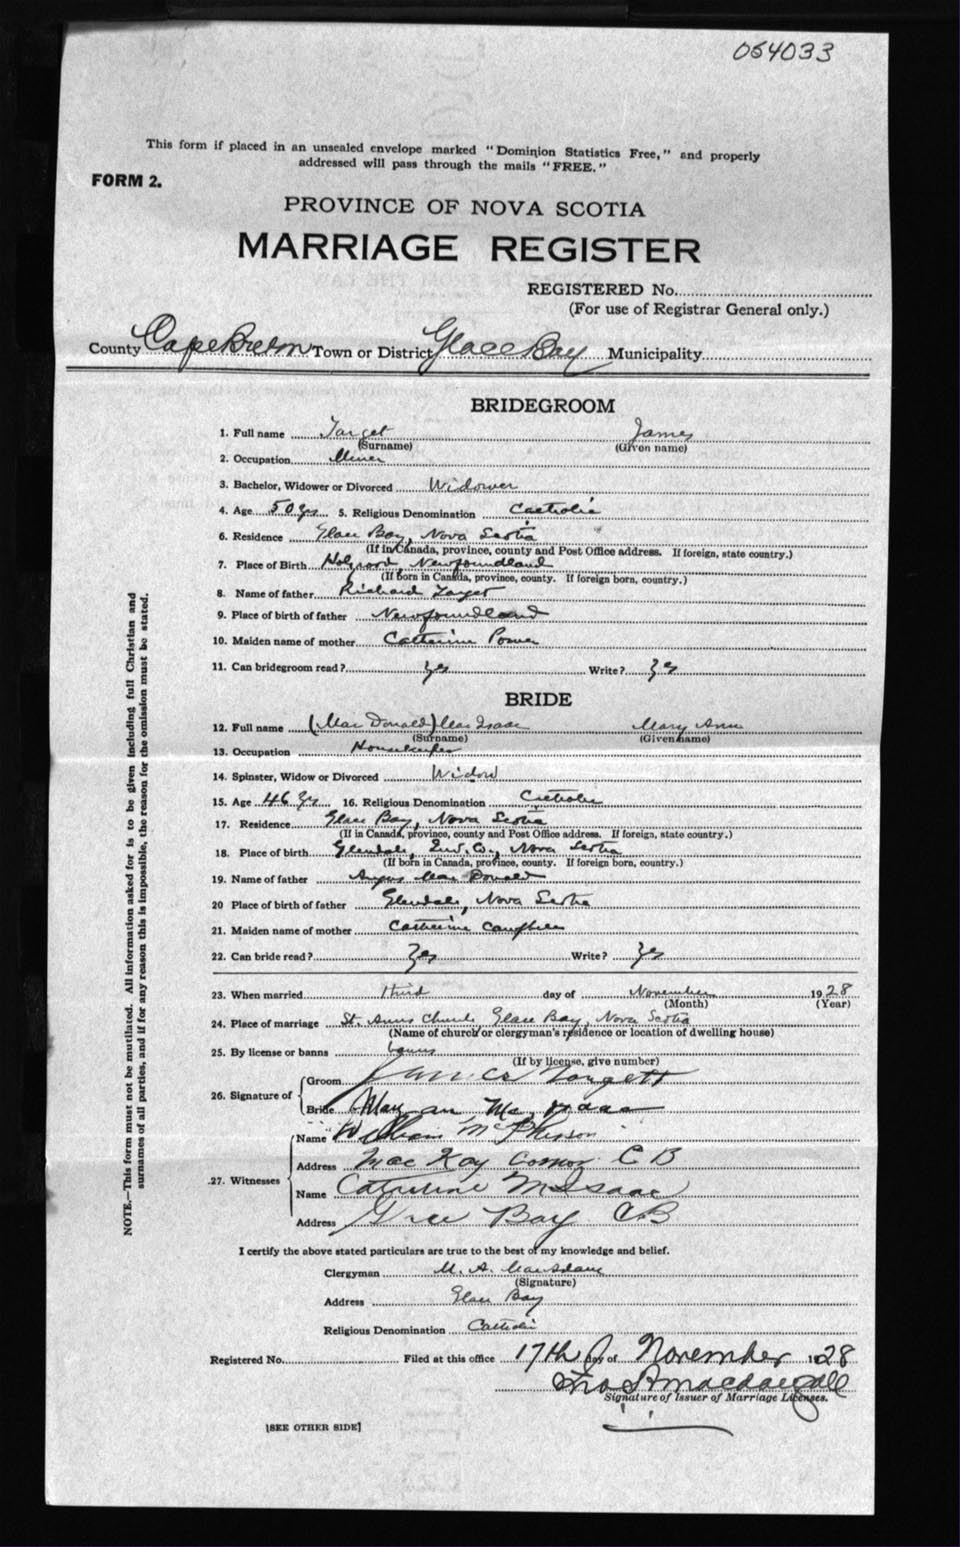 054033
This form if placed in an unsealed envelope marked "Dominion Statistics Free," and properly
addressed will pass through the mails "FREE."
FORM 2.
PROVINCE OF NOVA SCOTIA
MARRIAGE REGISTER
REGISTERED No.
(For use of Registrar General only.)
County Cape Breton Town or District Glace Bay Municipality
BRIDEGROOM
1. Full name Target James
(Surname) (Given name)
2. Occupation Miner
3. Bachelor, Widower or Divorced Widower
4. Age 50 yrs 5. Religious Denomination Catholic
6. Residence Glace Bay, Nova Scotia
(If in Canada, province, county and Post Office address. If foreign, state country.)
7. Place of Birth Holyrood, Newfoundland
(If born in Canada, province, county. If foreign born, country.)
8. Name of father Richard Target
9. Place of birth of father Newfoundland
10. Maiden name of mother Catherine Power
11. Can bridegroom read? Yes Write? Yes
BRIDE
12. Full name (Mac Donald) Mac Isaac Mary Ann
(Surname) (Given name)
13. Occupation Housekeeper
14. Spinster, Widow or Divorced Widow
15. Age 46 yrs 16. Religious Denomination Catholic
17. Residence Glace Bay, Nova Scotia
(If in Canada, province, county and Post Office address. If foreign, state country.)
18. Place of birth Glendale, Inv. Co., Nova Scotia
(If born in Canada, province, county. If foreign born, country.)
19. Name of father Angus Mac Donald
20 Place of birth of father Glendale, Nova Scotia
21. Maiden name of mother Catherine Campbell
22. Can bride read? Yes Write? Yes
23. When married third day of November 1928
(Month) (Year)
24. Place of marriage St. Anns Church Glace Bay, Nova Scotia
(Name of church or clergyman's residence or location of dwelling house)
25. By license or banns banns
(If by license, give number)
26. Signature of Groom James Torgett
Bride Mary an Mc Isaac
27. Witnesses Name William McPherson
Address Mac Kay Corner C B
Name Catherine McIsaac
Address Glace Bay C B
I certify the above stated particulars are true to the best of my knowledge and belief.
Clergyman M. A. MacAdam
(Signature)
Address Glace Bay
Religious Denomination Catholic
Registered No. Filed at this office 17th day of November 1928
Macdougall
Signature of Issuer of Marriage Licenses.
[SEE OTHER SIDE]
NOTE.—This form must not be mutilated. All information asked for is to be given including full Christian and
surnames of all parties, and if for any reason this is impossible, the reason for the omission must be stated.